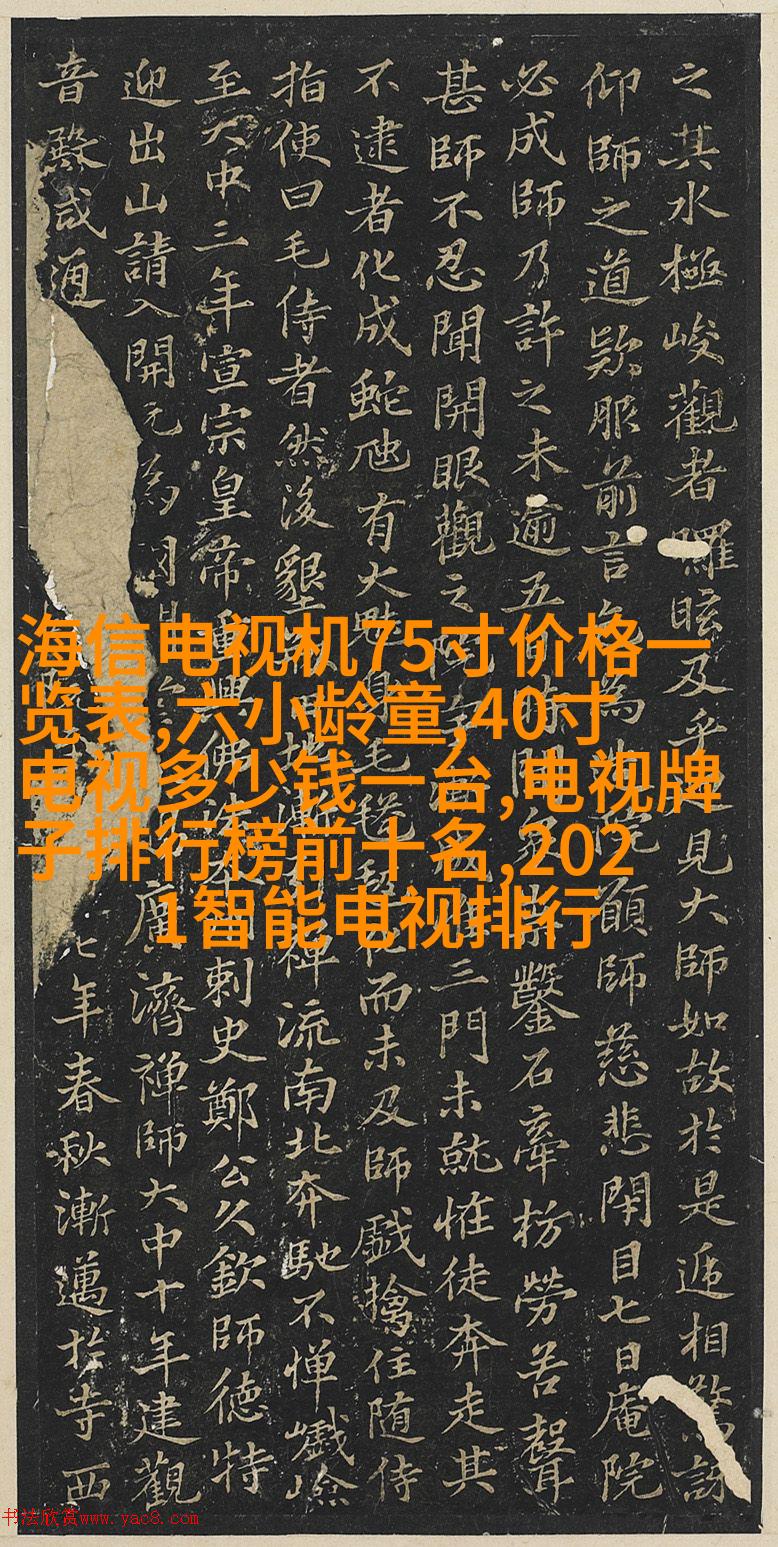 之其水極峻觀者眩及乎見大師如故於是遞相驚訝
仰師之道歎服前言為院願師慈悲閑目七日庵院
必成師乃許之未逾五鑿石牽枋勞苦聲
甚師不忍聞開眼觀之三門未就恠徒奔走其
不逮者化成蛇虺有大魅身毛而未及師戲擒住随侍
指使曰毛侍者然後墾禪流南北奔馳不憚巇嶮
至大中三年宣宗皇帝重興佛刺史鄭公久欽師德特
迎出山請入開元為廣濟禪師大中十年建觀
音殿咸通七年春秋漸邁於寺西
海信电视机75寸价格一
览表,六小龄童,40寸
电视多少钱一台,电视牌
子排行榜前十名,202
1智能电视排行
书法欣赏www.yac8.com